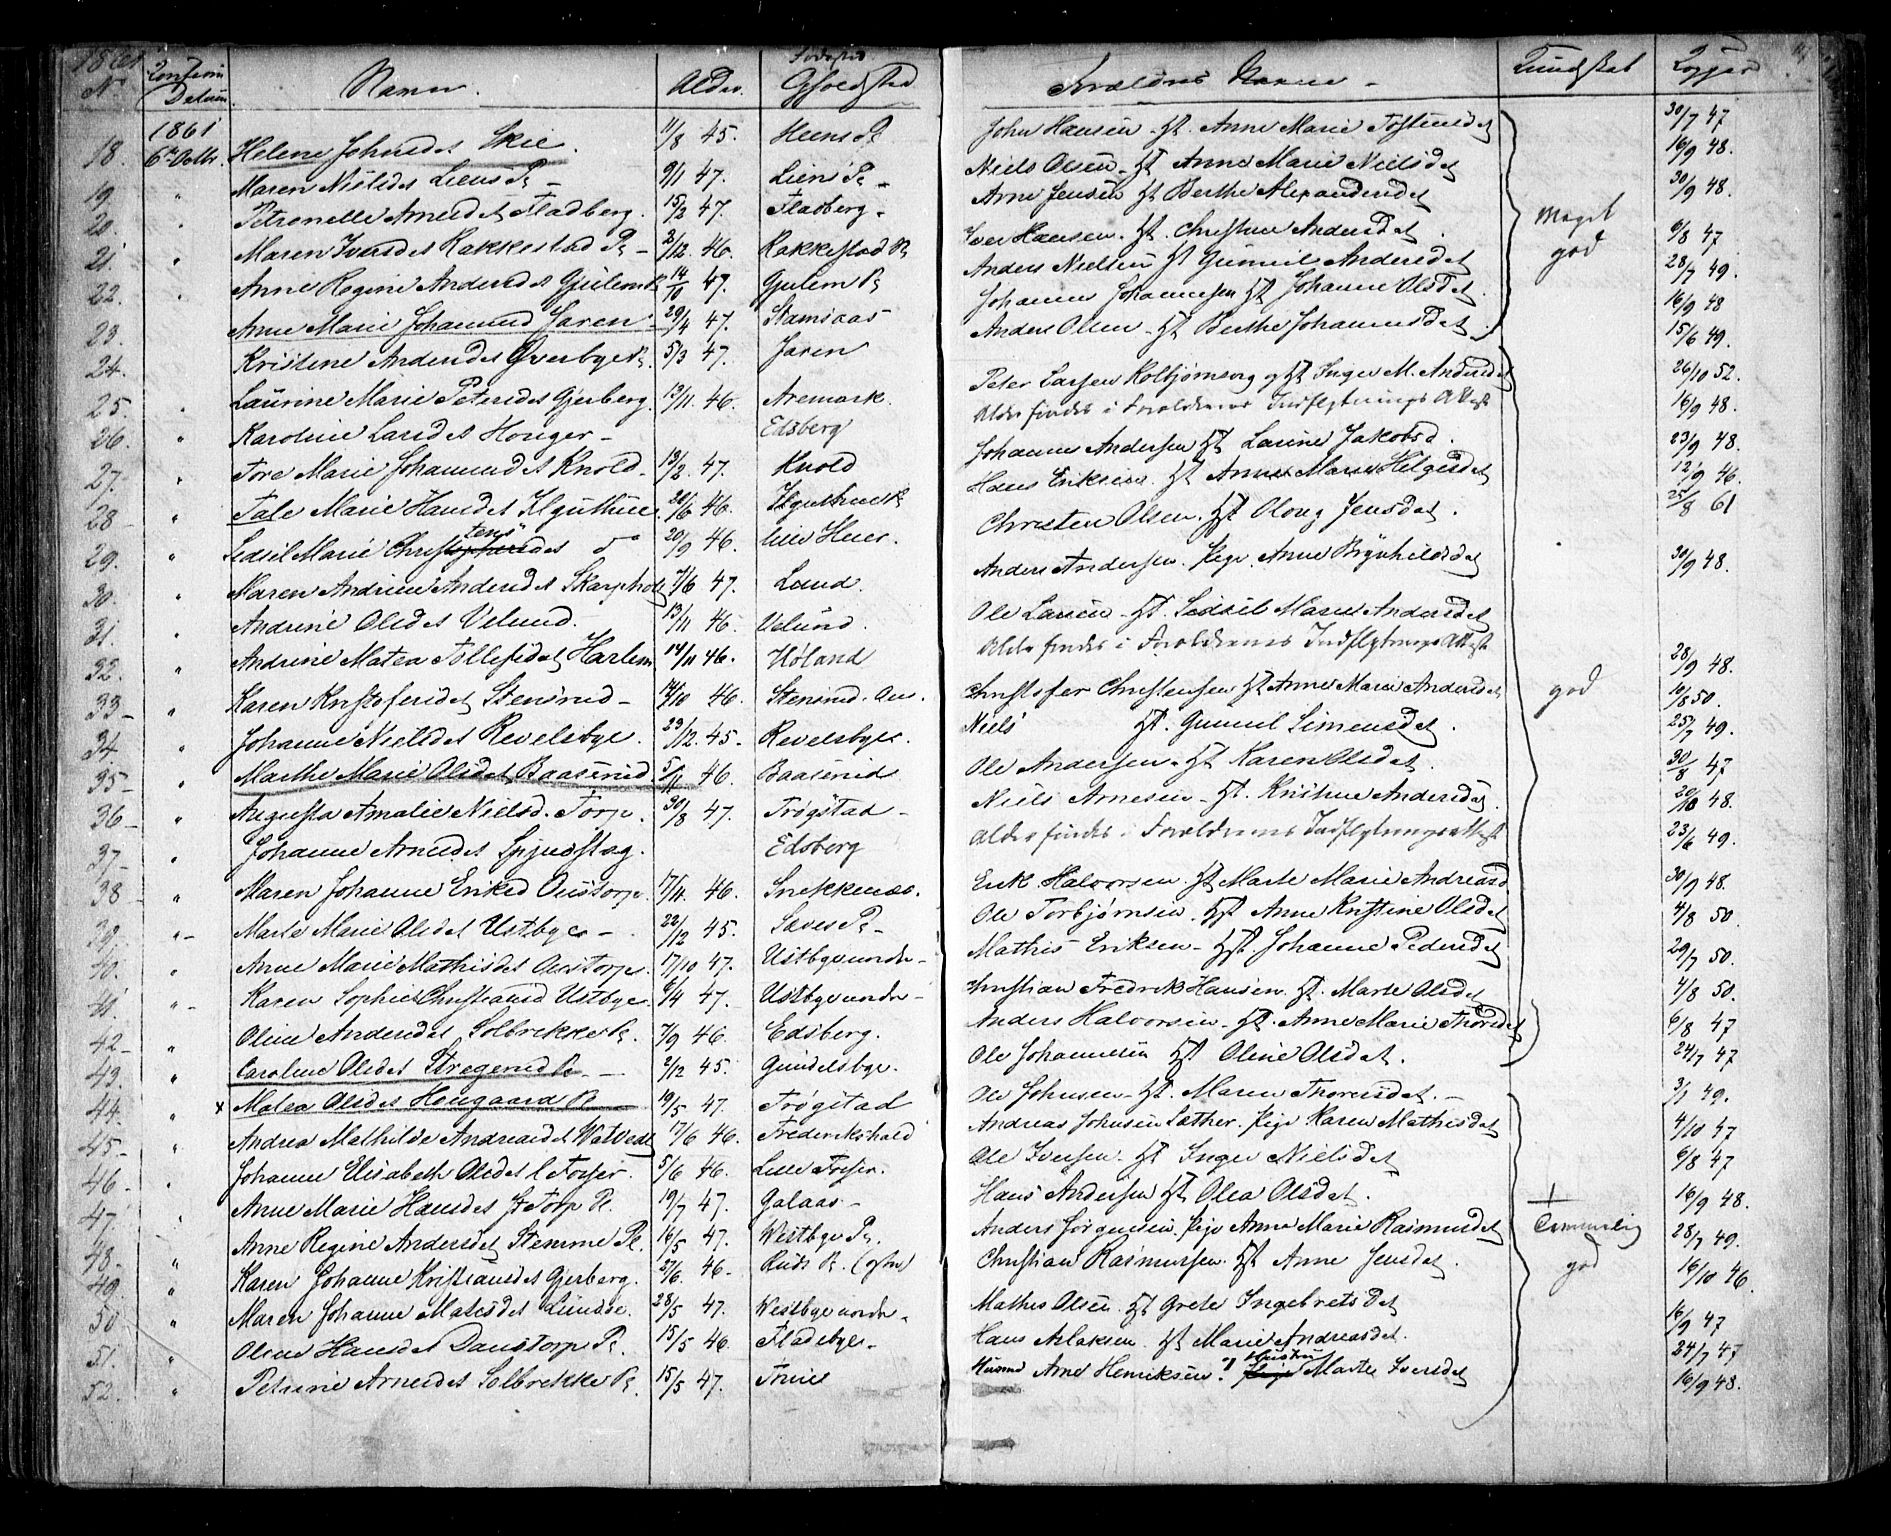 1861
No Datum Navn. Alder. Fødested Opholdssted Forældres Navne Kundskab Kopper
1861
18. 6te Octbr. Helene Johnsdet Skie. 11/8 45. Heens Pl John Hansen - Ht. Anne Marie Tostensdet 30/7 47
19. " Maren Nielsdet Liens Pl 9/1 47. Liens Pl Niels Olsen - Ht Anne Marie Nielsdet 16/9 48.
20. " Petronelle Arnesdet Fladberg. 15/2 47. Fladberg. Arne Jensen Ht Berthe Alexandersdet 30/9 48. Meget god
21. " Maren Iversdet Rakkestad Pl 2/12. 46. Rakkestad Pl Iver Hansen. Ht. Christine Andersdet 6/8 47
22. " Anne Regine Andersdet Gjulem Pl 14/10 47. Gjulem Pl Anders Nielsen Ht Gunnil Andersdet 28/7 49.
23. Anne Marie Johannesd Jaren 29/4 47. Stamsaas Johannes Johannesen Ht Johanne Olsdet. 16/9 48
24. Kristine Andersdet Gverbye Pl. 5/3 47. Jaren Anders Olsen - Ht Berthe Johannesdet. 15/6 49.
25. " Laurine Marie Petersdet Gjerberg. 13/11. 46. Aremark. Peter Larsen Kolbjørnsvig og Ht Inger M. Andersdet 26/10 52.
26. " Karoline Larsdet Honger Edsberg Alder findes i Forældrenes Indflytnings Attest 16/9 48.
27. " Tore Marie Johannesdet Knold 13/2 47. Knold Johannes Andersen Ht Larine Jakobsd. 23/9 48.
28 " Tale Marie Hansdet 20/6 46. Hans Eriksen. Ht Anne Marie Helgesdet 12/9 46.
29. " Sedsil Marie Christensdet do 20/9 46. Lille Heer. Christen Olsen. Ht Oloug Jensdet. 25/8 61
30. " Maren Andrine Andersdet Skarpholt 7/6 47. Lund. Anders Andersen. Pige. Anne Brynhildsdet 30/9 48.
31. " Andrine Olsdet Velund. 13/11 46. Velund. Ole Larsen - Ht. Sedsil Marie Andersdet
32. " Andrine Matea Tollefsdet Harlem 14/11 46. Høland Alder findes i Forældrenes Indflytnings Attest 28/9 48.
33 " Karen Kristofersdet Stensrud 14/10 46. Stensrud. Christofer Christensen Ht Anne Marie Andersdet 10/8 50. god
34. " Johanne Nielsdet Revelsbye. 23/12. 45. Revelsbye. Niels Ht. Gunnil Simensdet. 25/7 49.
35 " Marthe Marie Olsdet Baaserud 5/11 46. Baaserud Ole Andersen. Ht Karen Olsdet. 30/8 47
36 " Augusta Amalie Nielsd. Torp. 30/8 47. Trøgstad Niels Arnesen - Ht. Kristine Andersdet. 20/10 48.
37 " Johanne Arnesdet Spyndstag. Edsberg Alder findes i Forældrenes Indflytningsattest 23/6 49.
38 " Maren Johanne Eriksd Oustorp. 17/11 46. Snekkenæs. Erik Halvorsen. Ht Marte Marie Andreasd 30/9 48.
39. " Marte Marie Olsdet Ustbye 22/12 45. Saves Pl Ole Torbjørnsen. Ht Anne Kristine Olsdet 4/8 50.
40. " Anne Marie Mathisdet Oustorp. 17/10 47. Ustbye nordre Mathis Eriksen - Ht. Johanne Pedersdet 29/7 50.
41. " Karen Sophie Christiansd Ustbye. 6/4 47. Ustbye nordre Christian Fredrik Hansen. Ht. Marte Olsdet 4/8 50.
42 " Oline Andersdet Solbrekke Pl. 7/9 46. Edsberg. Anders Halvorsen - Ht. Anne Marie Thoresdet 6/8 47
43. " Caroline Olsdet Stregerud Pl. 2/12 45. Gundelsbye. Ole Johannesen Ht Oline Olsdet. 24/7 47
44. " x Matea Olsdet Hougaard Pl 19/5 47. Trøgstad Ole Johnsen - Ht. Maren Thoresdet. 3/1 49.
45 " Andrea Mathilde Andreasdet Watvedt 17/6 46. Frederikshald Andreas Johnsen Sæther. Pige Karen Mathisdet 4/10 47
46 " Johanne Elisabeth Olsdet l Fosser. 5/6 46. Lille Fosser. Ole Iversen. Ht Inger Nielsdet 6/8 47
47. " Anne Marie Hansdet St Torp Pl. 19/7 47. Galaas Hans Andersen Ht Olea Olsdet. 16/9 48.
48. " Anne Regine Andersdet Stemme Pl. 16/5 47. Westbye Pl. Anders Jørgensen. Pige Anne Marie Rasmusdet 28/7 49. Temmelig god
49. " Karen Johanne Kristiansdet Gjerberg. 27/6. 46. Ruds Pl. (østre) Christian Rasmussen. Ht Anne Jensdet. 16/10 46.
50 " Maren Johanne Matisdet Lundse. 28/5 47. Westbye nordre Mathis Olsen. Ht Grete Ingebretsdet 16/9 47
51. " Oline Hansdet Danstorp Pl. 15/5 46. Fladebye. Hans Aslaksen. Ht Marie Andreasdet. 24/7 47
52. " Petrine Arnesdet Solbrekke Pl 15/5 47. Husmd Arne Henriksen. og Hustru Marte Iversdet 16/9 48.